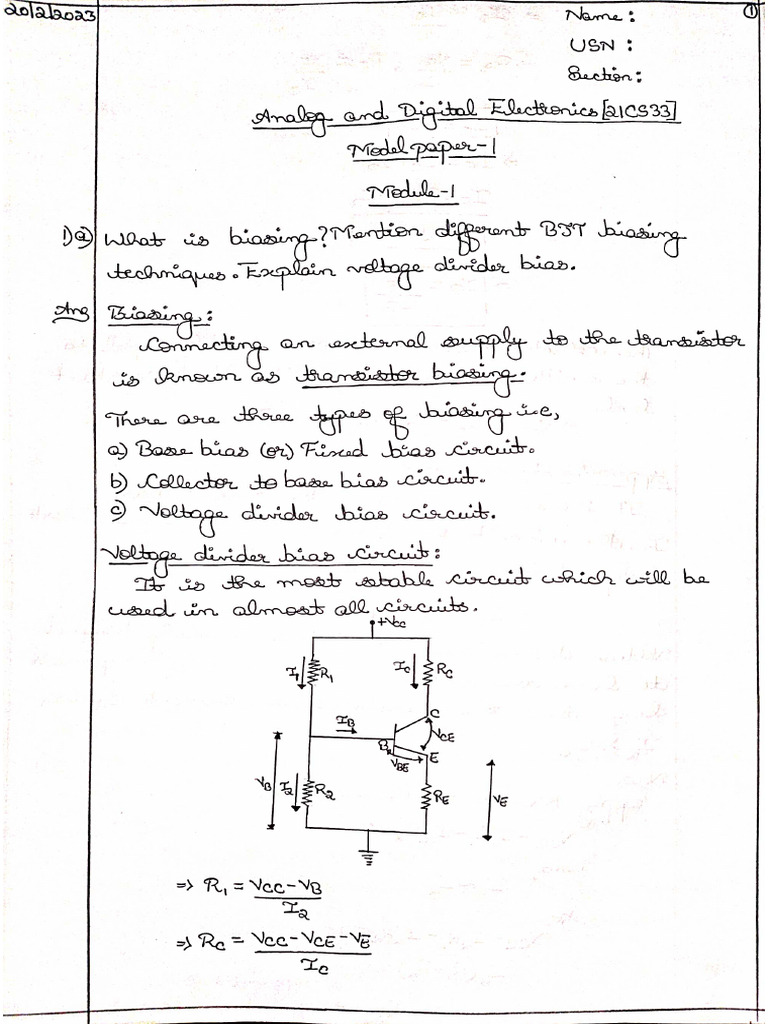 20/2/2023
Name:
①
USN:
Section:
Analog and Digital Electronics [21CS33]
Model paper-1
Module-1
1) a) What is biasing? Mention different BJT biasing
techniques. Explain voltage divider bias.
Ans Biasing:
Connecting an external supply to the transistor
is known as transistor biasing.
There are three types of biasing i.e,
a) Base bias (or) Fixed bias circuit.
b) Collector to base bias circuit.
c) Voltage divider bias circuit.
Voltage divider bias circuit:
It is the most stable circuit which will be
used in almost all circuits.
+Vcc
I1 R1 IC RC
IB C
B VCE
VBE E
VB I2 R2 RE VE
⇒ R1 = VCC-VB
I2
⇒ RC = VCC-VCE-VE
IC